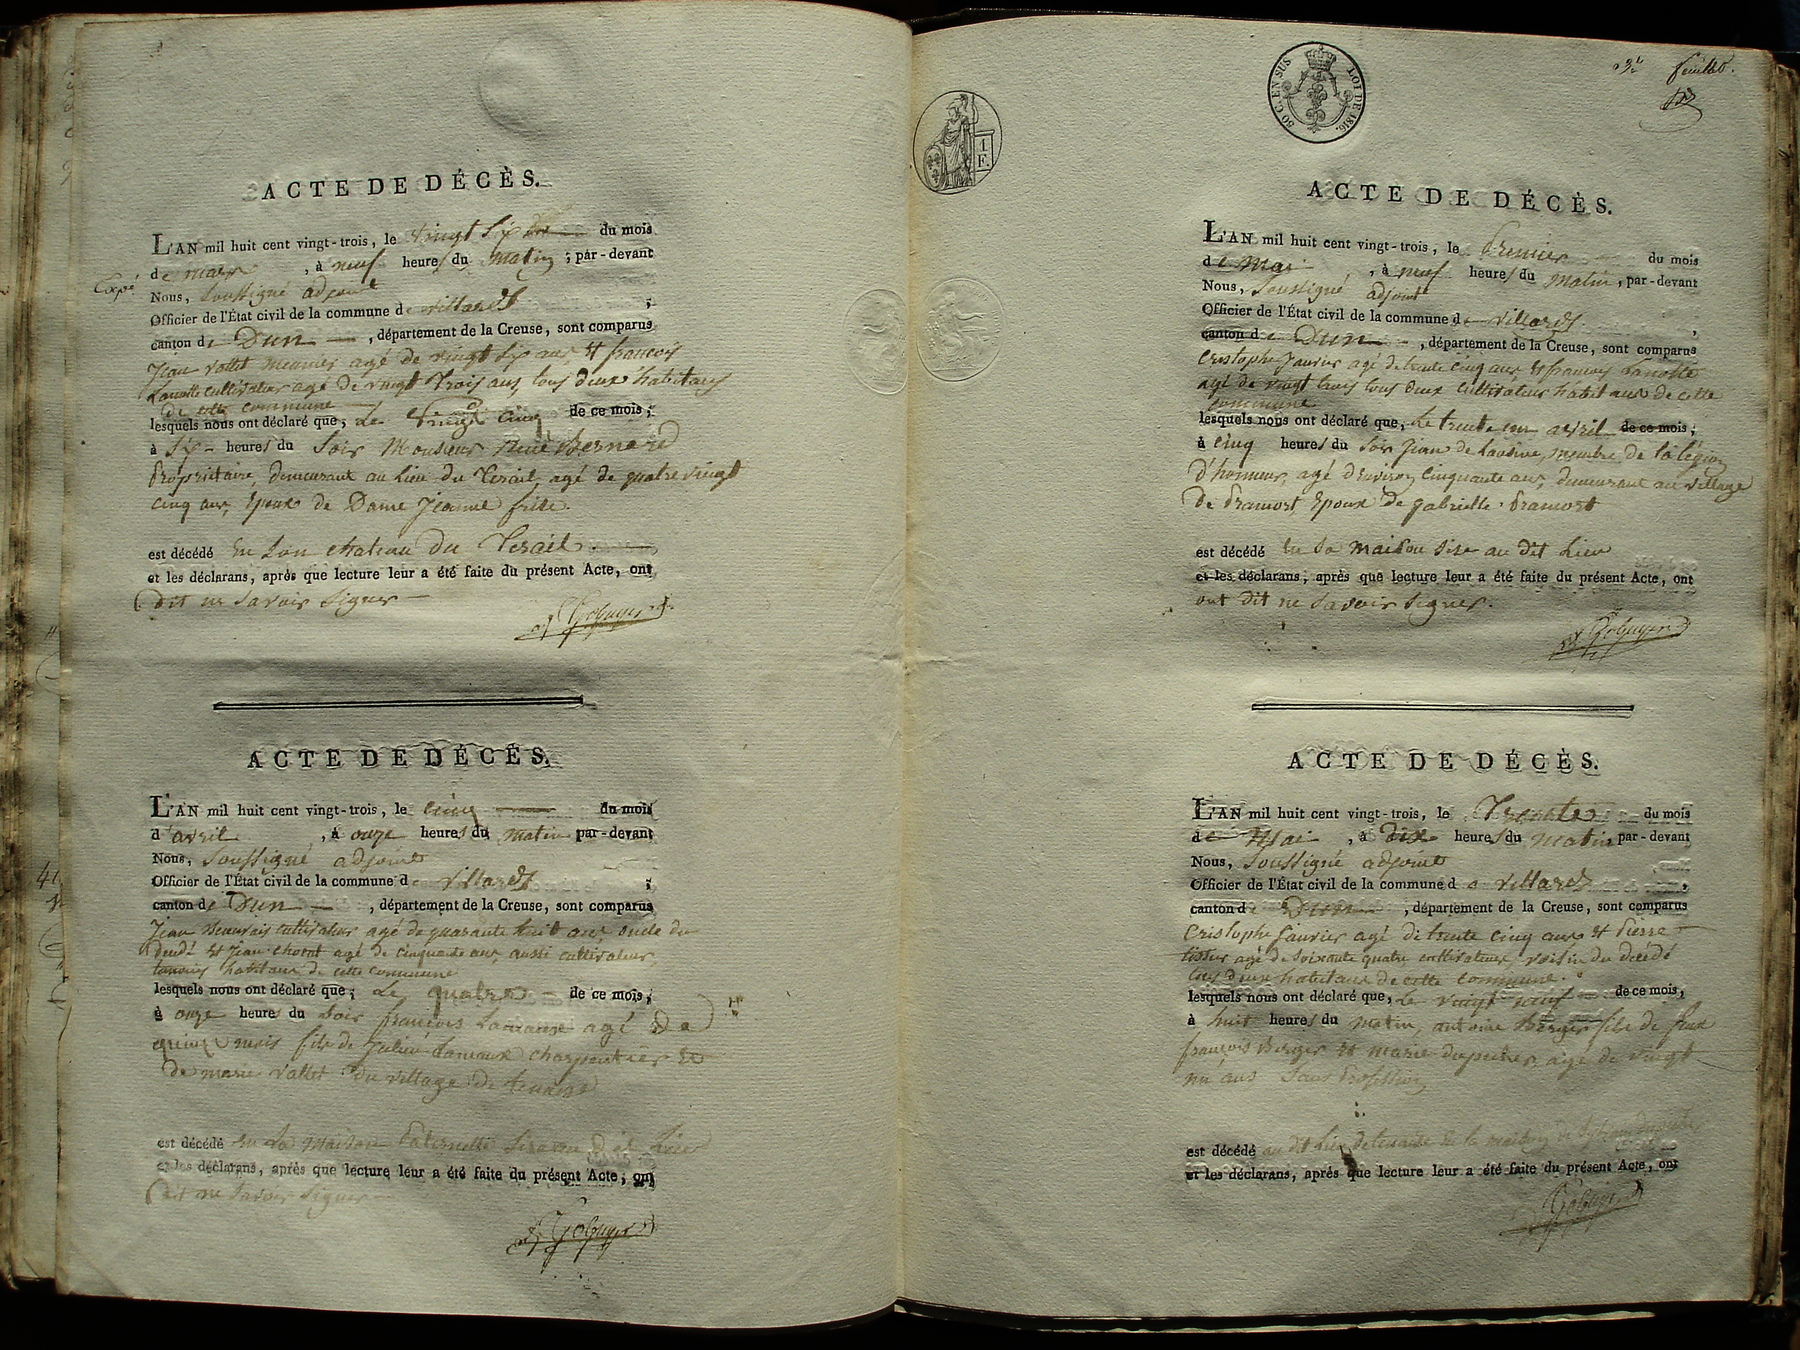 ACTE DE DÉCÈS.
L'AN mil huit cent vingt-trois, le vingt Six du mois
de mars, à neuf heures du matin; par-devant
Copié
Nous, Soussigné adjoint
Officier de l'État civil de la commune de villards;
canton de Dun, département de la Creuse, sont comparus
Jean vallet meunier agé de vingt Six ans Et francois
Lanotte cultivateur agé de vingt Trois ans, tous deux habitans
de cette commune
lesquels nous ont déclaré que, Le Vingt Cinq de ce mois;
à Six heures du Soir Monsieur Bernard
Propriétaire, demeurant au Lieu du Terail, agé de quatre vingt
cinq ans, Epoux de Dame Jeanne
est décédé En Son chateau du Terail
et les déclarans, après que lecture leur a été faite du présent Acte, ont
Dit ne Savoir Signer
ACTE DE DÉCÈS.
L'AN mil huit cent vingt-trois, le cinq du mois
d'avril, à onze heures du matin par-devant
Nous, Soussigné adjoint
Officier de l'État civil de la commune de villards;
canton de Dun, département de la Creuse, sont comparus
Jean cultivateur agé de quarante huit ans oncle du
et Jean agé de cinquante ans aussi cultivateur,
habitans de cette commune
lesquels nous ont déclaré que; Le quatre de ce mois;
à onze heures du Soir francois agé de
quinze mois fils de charpentier Et
De marie vallet du village de
est décédé En La maison Paternelle Size au Dit Lieu
et les déclarans, après que lecture leur a été faite du présent Acte; ont
Dit ne Savoir Signer
1
F.
50 C. EN SUS LOI DE 1816.
3e feuillet.
ACTE DE DÉCÈS.
L'AN mil huit cent vingt-trois, le Premier du mois
de Mai, à neuf heures du Matin, par-devant
Nous, Soussigné adjoint
Officier de l'État civil de la commune de villards,
canton de Dun, département de la Creuse, sont comparus
Cristophe Janvier agé de trente cinq ans Et francois Lanotte
agé de vingt trois tous deux Cultivateur habitans de cette
commune
lesquels nous ont déclaré que, Le trente un avril de ce mois;
à cinq heures du Soir Jean de Lavoine, membre de la légion
d'honneur, agé d'Environ Cinquante ans, demeurant au village
De Pramort Epoux De gabrielle Pramort
est décédé En Sa maison Size au dit Lieu
et les déclarans, après que lecture leur a été faite du présent Acte, ont
ont dit ne Savoir Signer.
ACTE DE DÉCÈS.
L'AN mil huit cent vingt-trois, le Trente du mois
de Mai, à Dix heures du matin par-devant
Nous, Soussigné adjoint
Officier de l'État civil de la commune de villards,
canton de Dun, département de la Creuse, sont comparus
Cristophe Janvier agé de trente cinq ans Et Pierre
tissier agé de Soixante quatre cultivateurs, voisin du décédé
tous deux habitans de cette commune.
lesquels nous ont déclaré que, Le vingt neuf de ce mois,
à huit heures du matin, antoine Berger fils de feux
francois Berger Et marie agé de vingt
un ans Sans Profession
est décédé au dit Lieu de En la maison de
et les déclarans, après que lecture leur a été faite du présent Acte, ont